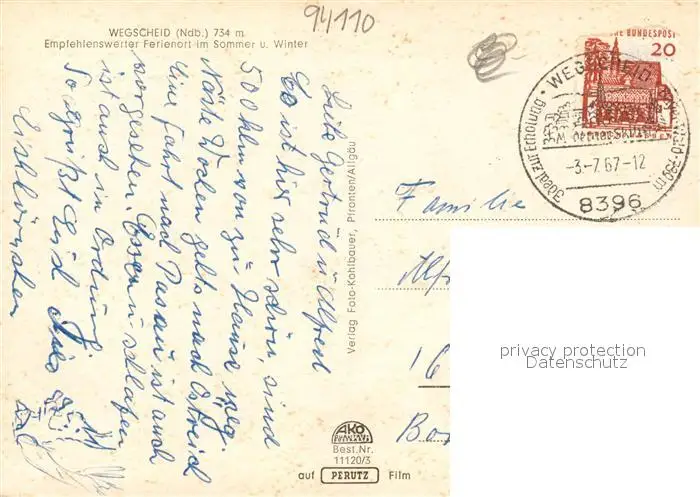 94110
WEGSCHEID (Ndb.) 734 m
Empfehlenswerter Ferienort im Sommer u. Winter
Liebe Gertrud u Alfred
Es ist hier sehr schön, sind
500 klm von zu Hause weg.
Näste Wochen gehts nach Östreich
eine Fahrt nach Passau ist auch
vorgesehen. Essen u schlafen
ist auch in Ordnung
So grüßt Euch
Verlag Foto-Kohlbauer, Pfronten/Allgäu
DEUTSCHE BUNDESPOST
20
WEGSCHEID
Ideal zur Erholung
-3.-7.67-12
8396
Familie
Alf
16
Bo
privacy protection
Datenschutz
AKO
Best.Nr.
11120/3
auf PERUTZ Film